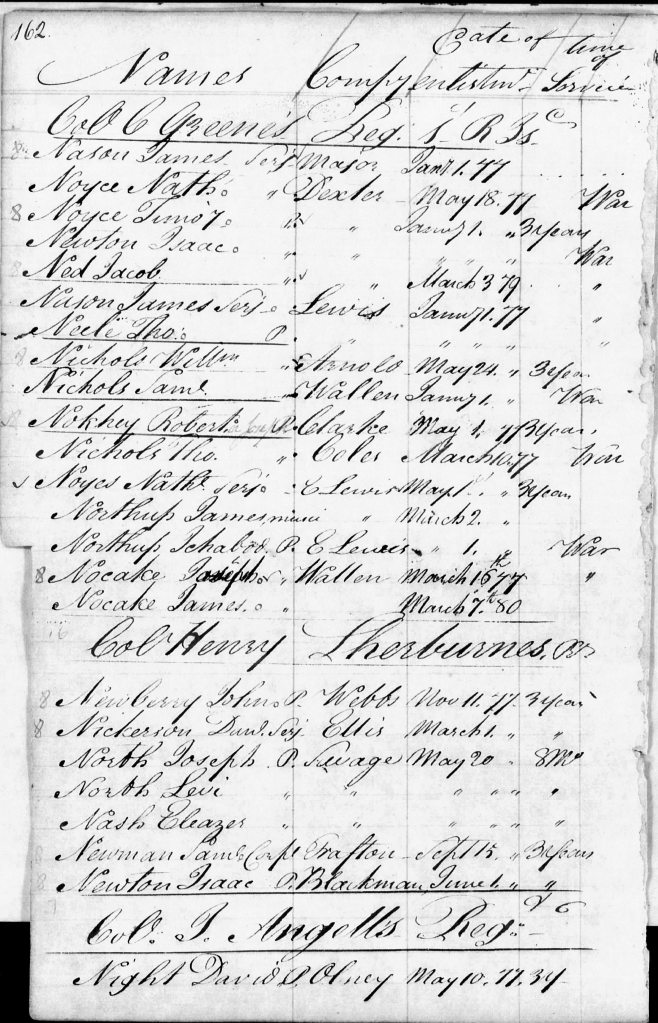 162.
Date of time of
Names Compy enlistmt Service
Col. C Greene's Reg. 1 R Is
8 Nason James Serjt Major Jany 1. 77
Noyce Nath. " Dexter May 18. 77 War
8 Noyce Timoy. " " Janury 1. " 3 years
Newton Isaac " " " " " War
Ned Jacob " " March 3 79 "
Nason James Serj. Lewis Janury 1. 77 "
Neele Tho. P. " " " " "
8 Nichols Willm " Arnold May 24. " 3 year
Nichols Saml. Wallen Janry 1. " War
Nokhey Robert P. Clarke May 1. 77 3 years
Nichols Tho. " Coles March 10. 77 War
Noyes Nathl. Serj. C Lewis May 1 " 3 years
Northup James, music " March 2. "
Northup Ichabod. P. E Lewis " 1. War
8 Nocake Joseph " Wallen March 16th 77 "
Nocake James " March 7th 80
16
Col. Henry Sherburnes. Rt
8 Newberry John P. Webbs Nov 11. 77. 3 years
8 Nickerson Danl. Serj. Ellis March 1. " "
North Joseph P. Savage May 20 " 8 Mo
North Levi " " " " "
Nash Eleazer " " " " "
8 Newman Saml. Corpl Trafton Sept 15. " 3 years
8 Newton Isaac P. Blackman June 1. " "
7
Col. I. Angell's Reg.
Night David P. Olney May 10. 77. 3 y